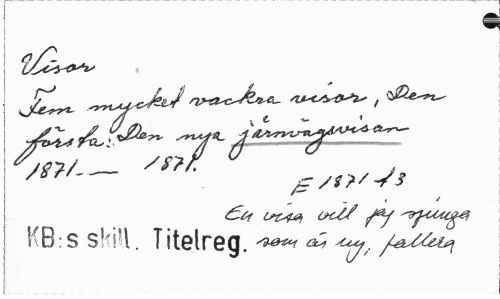 Visor
Fem mycket vackra visor, Den
första: Den nya järnvägsvisan
1871. — 1871.
E 1871 f3
En visa vill jag sjunga
KB:s skill. Titelreg. som är ny, fallera